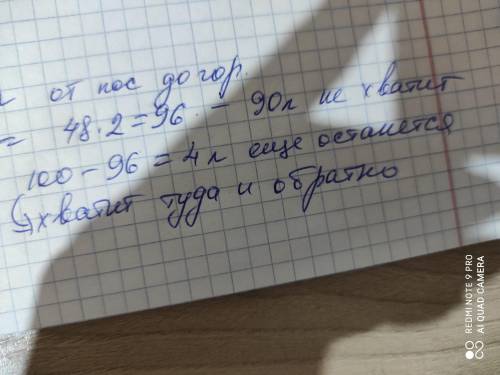 от пос до гор.
= 48·2=96 - 90л не хватит
100-96=4л еще останется
хватит туда и обратно
REDMI NOTE 9 PRO
AI QUAD CAMERA